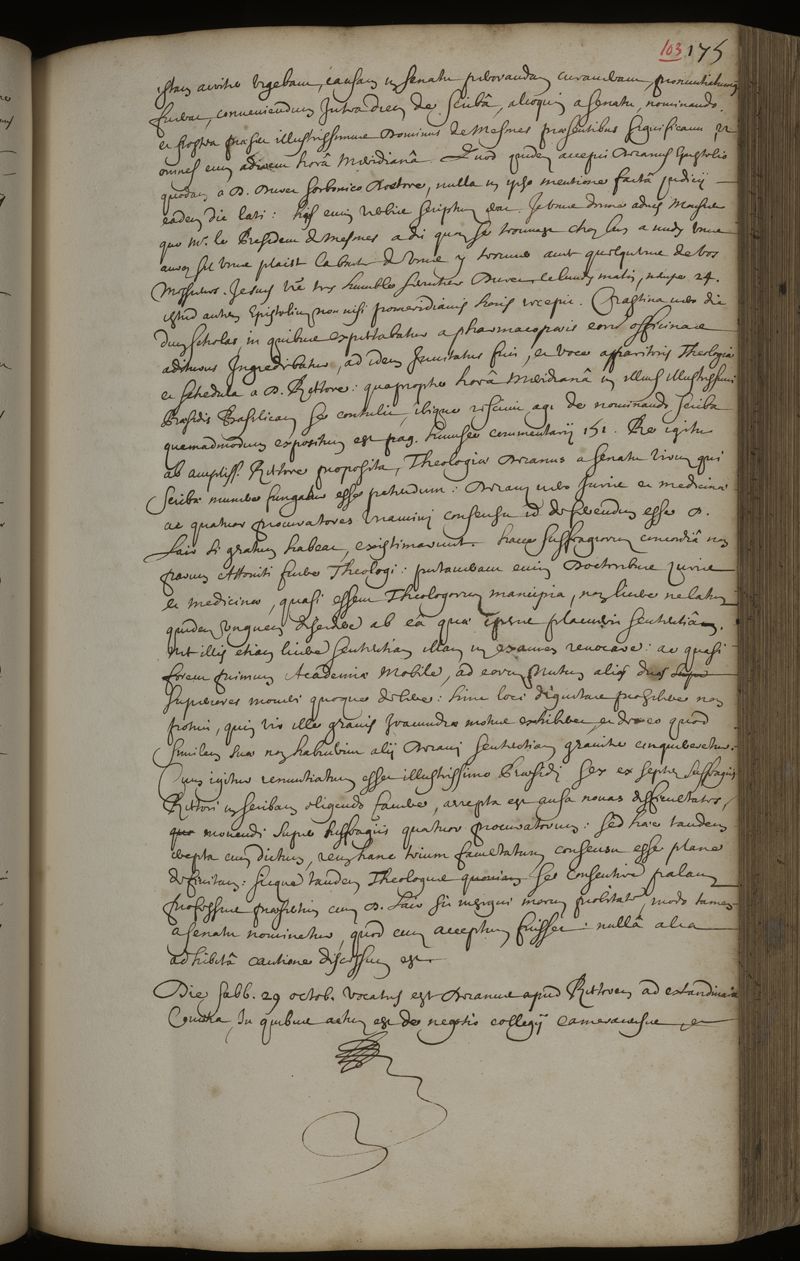 103 175
istam acrius urgebam, causam in senatu perorandam curaveram, pronuntiatumque
fuerat, conveniendum intra diem de scribâ, alioqui a senatu, nominando.
et nostra praeses illustrissimus Dominus de Mesmes praesentibus significavit ut
omnes eum adirent horâ meridianâ. Quod quidem accepi Decanus Epistolio
quodam a D. Duval sorbonico doctore, nulla in ipso mentione factâ judicij
eadem die lati: his enim verbis scriptum erat.
que Mr. le President de Mesmes a dit que se trouvast chez luy a midy
avec sil vous plaist et vous y trouver avec quelqu'une de vos
Messieurs. Je suis vre tres humble serviteur Duval, ce lundy matin, nempe 24.
istud autem Epistolium non nisi pomeridianis horis recepi. Crastina vero die
dum scholas, in quibus expectabatur a pharmacopoeis eorum officinae
adituros ingrediebatur, ad idem invitatus fui, et voce apparitoris Theologiae
et schedula a D. Rectore: quapropter horâ meridianâ in illius illustrissimi
Praesidis Basilicam se contulit, ibique rursum agi de nominando scriba
quemadmodum expositum est pag. huiusce commentarij 151. Re igitur
ab ampliss. Rectore proposita, Theologiae Decanus a senatu virum qui
scribae munere fungatur esse petendum: Decani vero juris et medicinae
ac quatuor procuratores unanimi consensu id deferendum esse D.
Lair si gratum habeat, existimarunt. hacce suffragiorum concordiâ non
parum attoniti fuere Theologi: putabant enim Doctoribus juris
et medicinae, quasi essent Theologorum mancipia, non licere ne latum
quidem unguem discedere ab eâ quae ipsis placuerit sententiâ.
ut illis etiam liceret sententiam illam in examen revocare: ac quasi
forent primum Academiae mobile, ad eorum nutum alios duos
superiores moveri quoque debere: hinc loci dignitate prohibere non
potuit, quin vir ille gravis iracundiae motus exhiberet, et de eo quod
similem suae non habuerint alij Decani sententiam graviter conquereretur.
Cum igitur renuntiatum esset illustrissimo Praesidi sex ex septem suffragiis
Rectori in scribam eligendo favere, arrepta est ansa novas difficultates,
movendi super suffragiis quatuor procuratorum: sed haec tandem
cum dictum, rem hanc trium facultatum consensu esse plane
definitam: sicque tandem Theologus quoniam se consentire palam
professus praesertim cum D. Lair sit insigni morum probitate, modo tamen
a senatu nominetur, quod cum acceptum fuisset: nullâ alia
adhibitâ cautione discessum est.
Die sabb. 29 octob. vocatus est Decanus apud Rectorem ad extraordinaria
Comitia, in quibus actum est de negotio collegij Cameracensis, et